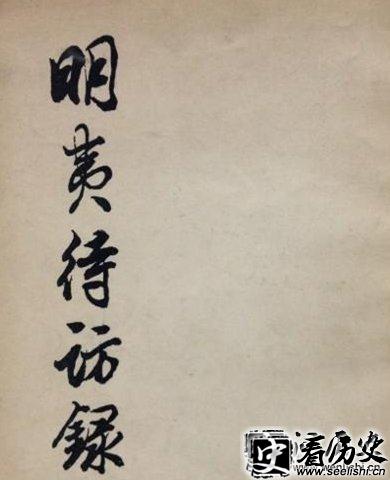 明夷待訪録
史看历史
www.seelishi.cn